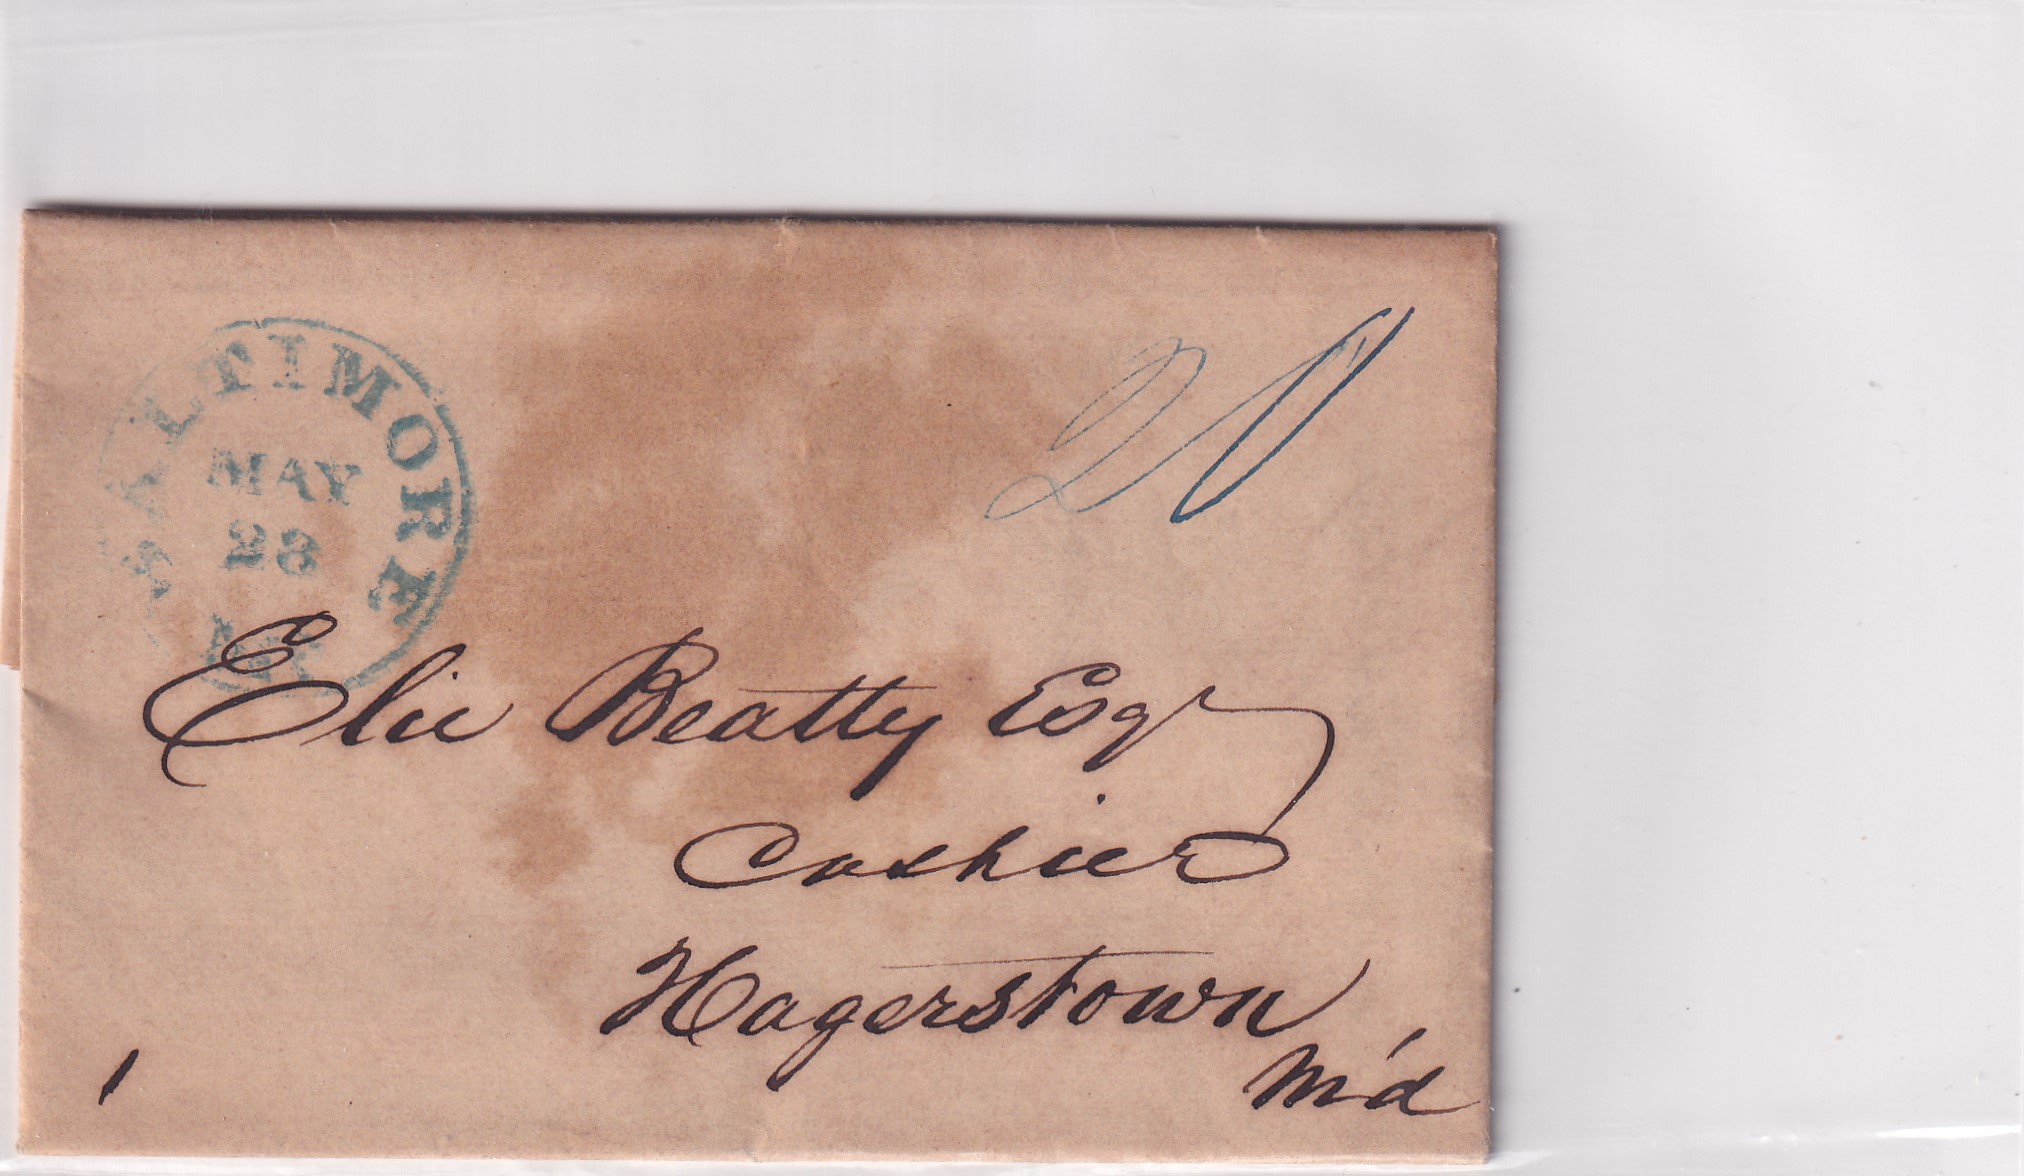 BALTIMORE
MAY
28
Md
20
Elie Beatty Esqr
Cashier
Hagerstown
Md